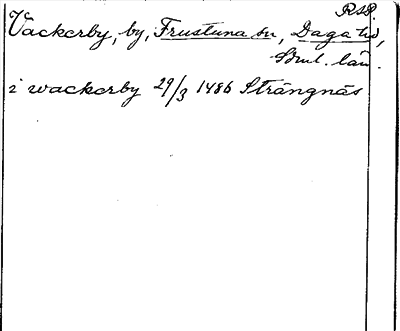 RAP.
Vackerby, by, Frustuna sn, Daga hd,
Söml. län.
i wackerby 29/3 1486 Strängnäs